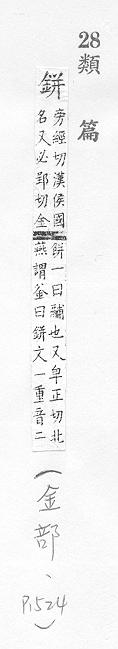 28
類篇
鉼
旁經切漢侯國
名又必郢切金
鉼一曰鬴也又卑正切北
燕謂釜曰鉼文一重音二
(金部、
P.1524)